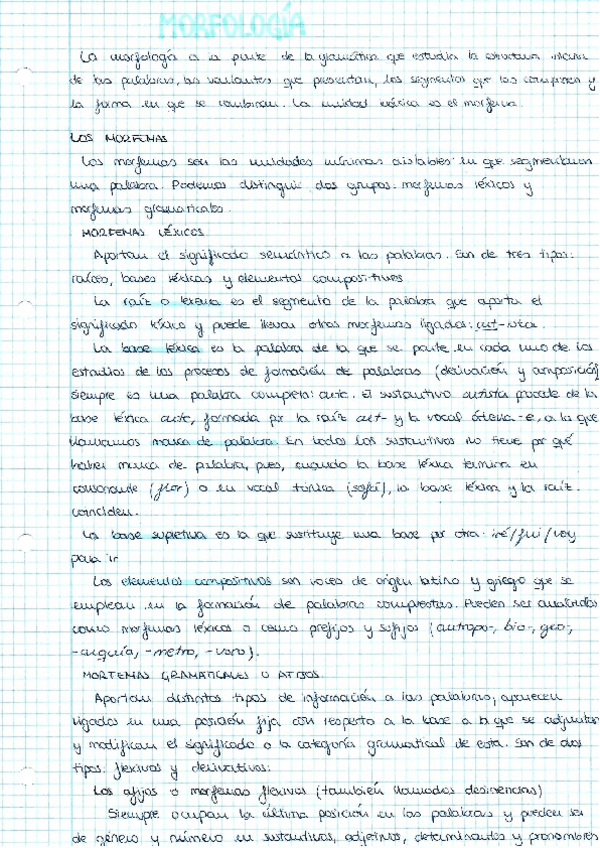 MORFOLOGÍA
La morfología es la parte de la gramática que estudia la estructura interna
de las palabras, las variantes que presentan, los segmentos que las componen y
la forma en que se combinan. La unidad básica es el morfema.
LOS MORFEMAS
Los morfemas son las unidades mínimas aislables en que segmentamos
una palabra. Podemos distinguir dos grupos: morfemas léxicos y
morfemas gramaticales.
MORFEMAS LÉXICOS
Aportan el significado semántico a las palabras. Son de tres tipos:
raíces, bases léxicas y elementos compositivos
La raíz o lexema es el segmento de la palabra que aporta el
significado léxico y puede llevar otros morfemas ligados: art-ista.
La base léxica es la palabra de la que se parte en cada uno de los
estudios de los procesos de formación de palabras (derivación y composición)
siempre es una palabra completa: arte. El sustantivo artista procede de la
base léxica arte, formada por la raíz art- y la vocal átona -e, a la que
llamamos marca de palabra. En todos los sustantivos no tiene por qué
haber marca de palabra, pues, cuando la base léxica termina en
consonante (flor) o en vocal tónica (sofá), la base léxica y la raíz
coinciden.
La base supletiva es la que sustituye una base por otra: iré/fui/voy
para ir
Los elementos compositivos son voces de origen latino y griego que se
emplean en la formación de palabras compuestas. Pueden ser analizados
como morfemas léxicos o como prefijos y sufijos (antropo-, bio-, geo-,
-arquía, -metro, -voro).
MORFEMAS GRAMATICALES O AFIJOS
Aportan distintos tipos de información a las palabras, aparecen
ligados en una posición fija con respecto a la base a la que se adjuntan
y modifican el significado o la categoría gramatical de esta. Son de dos
tipos: flexivos y derivativos:
Los afijos o morfemas flexivos (también llamados desinencias)
Siempre ocupan la última posición en las palabras y pueden ser
de género y número en sustantivos, adjetivos, determinantes y pronombres